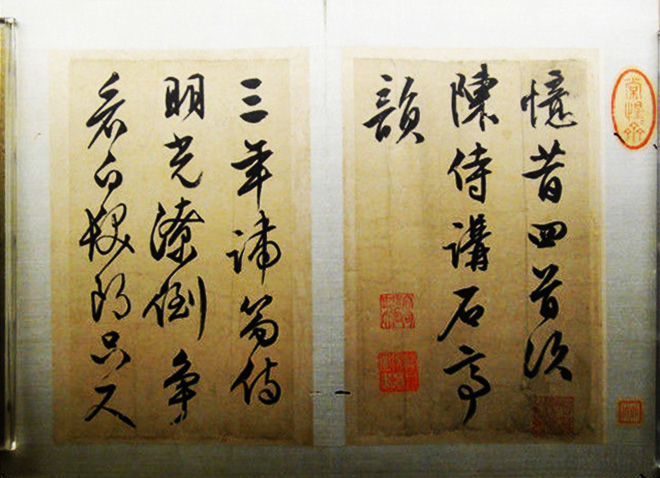 憶昔四首次
陳侍講石亭
韻
三年端笏侍
明光潦倒爭
看白髮郎只尺